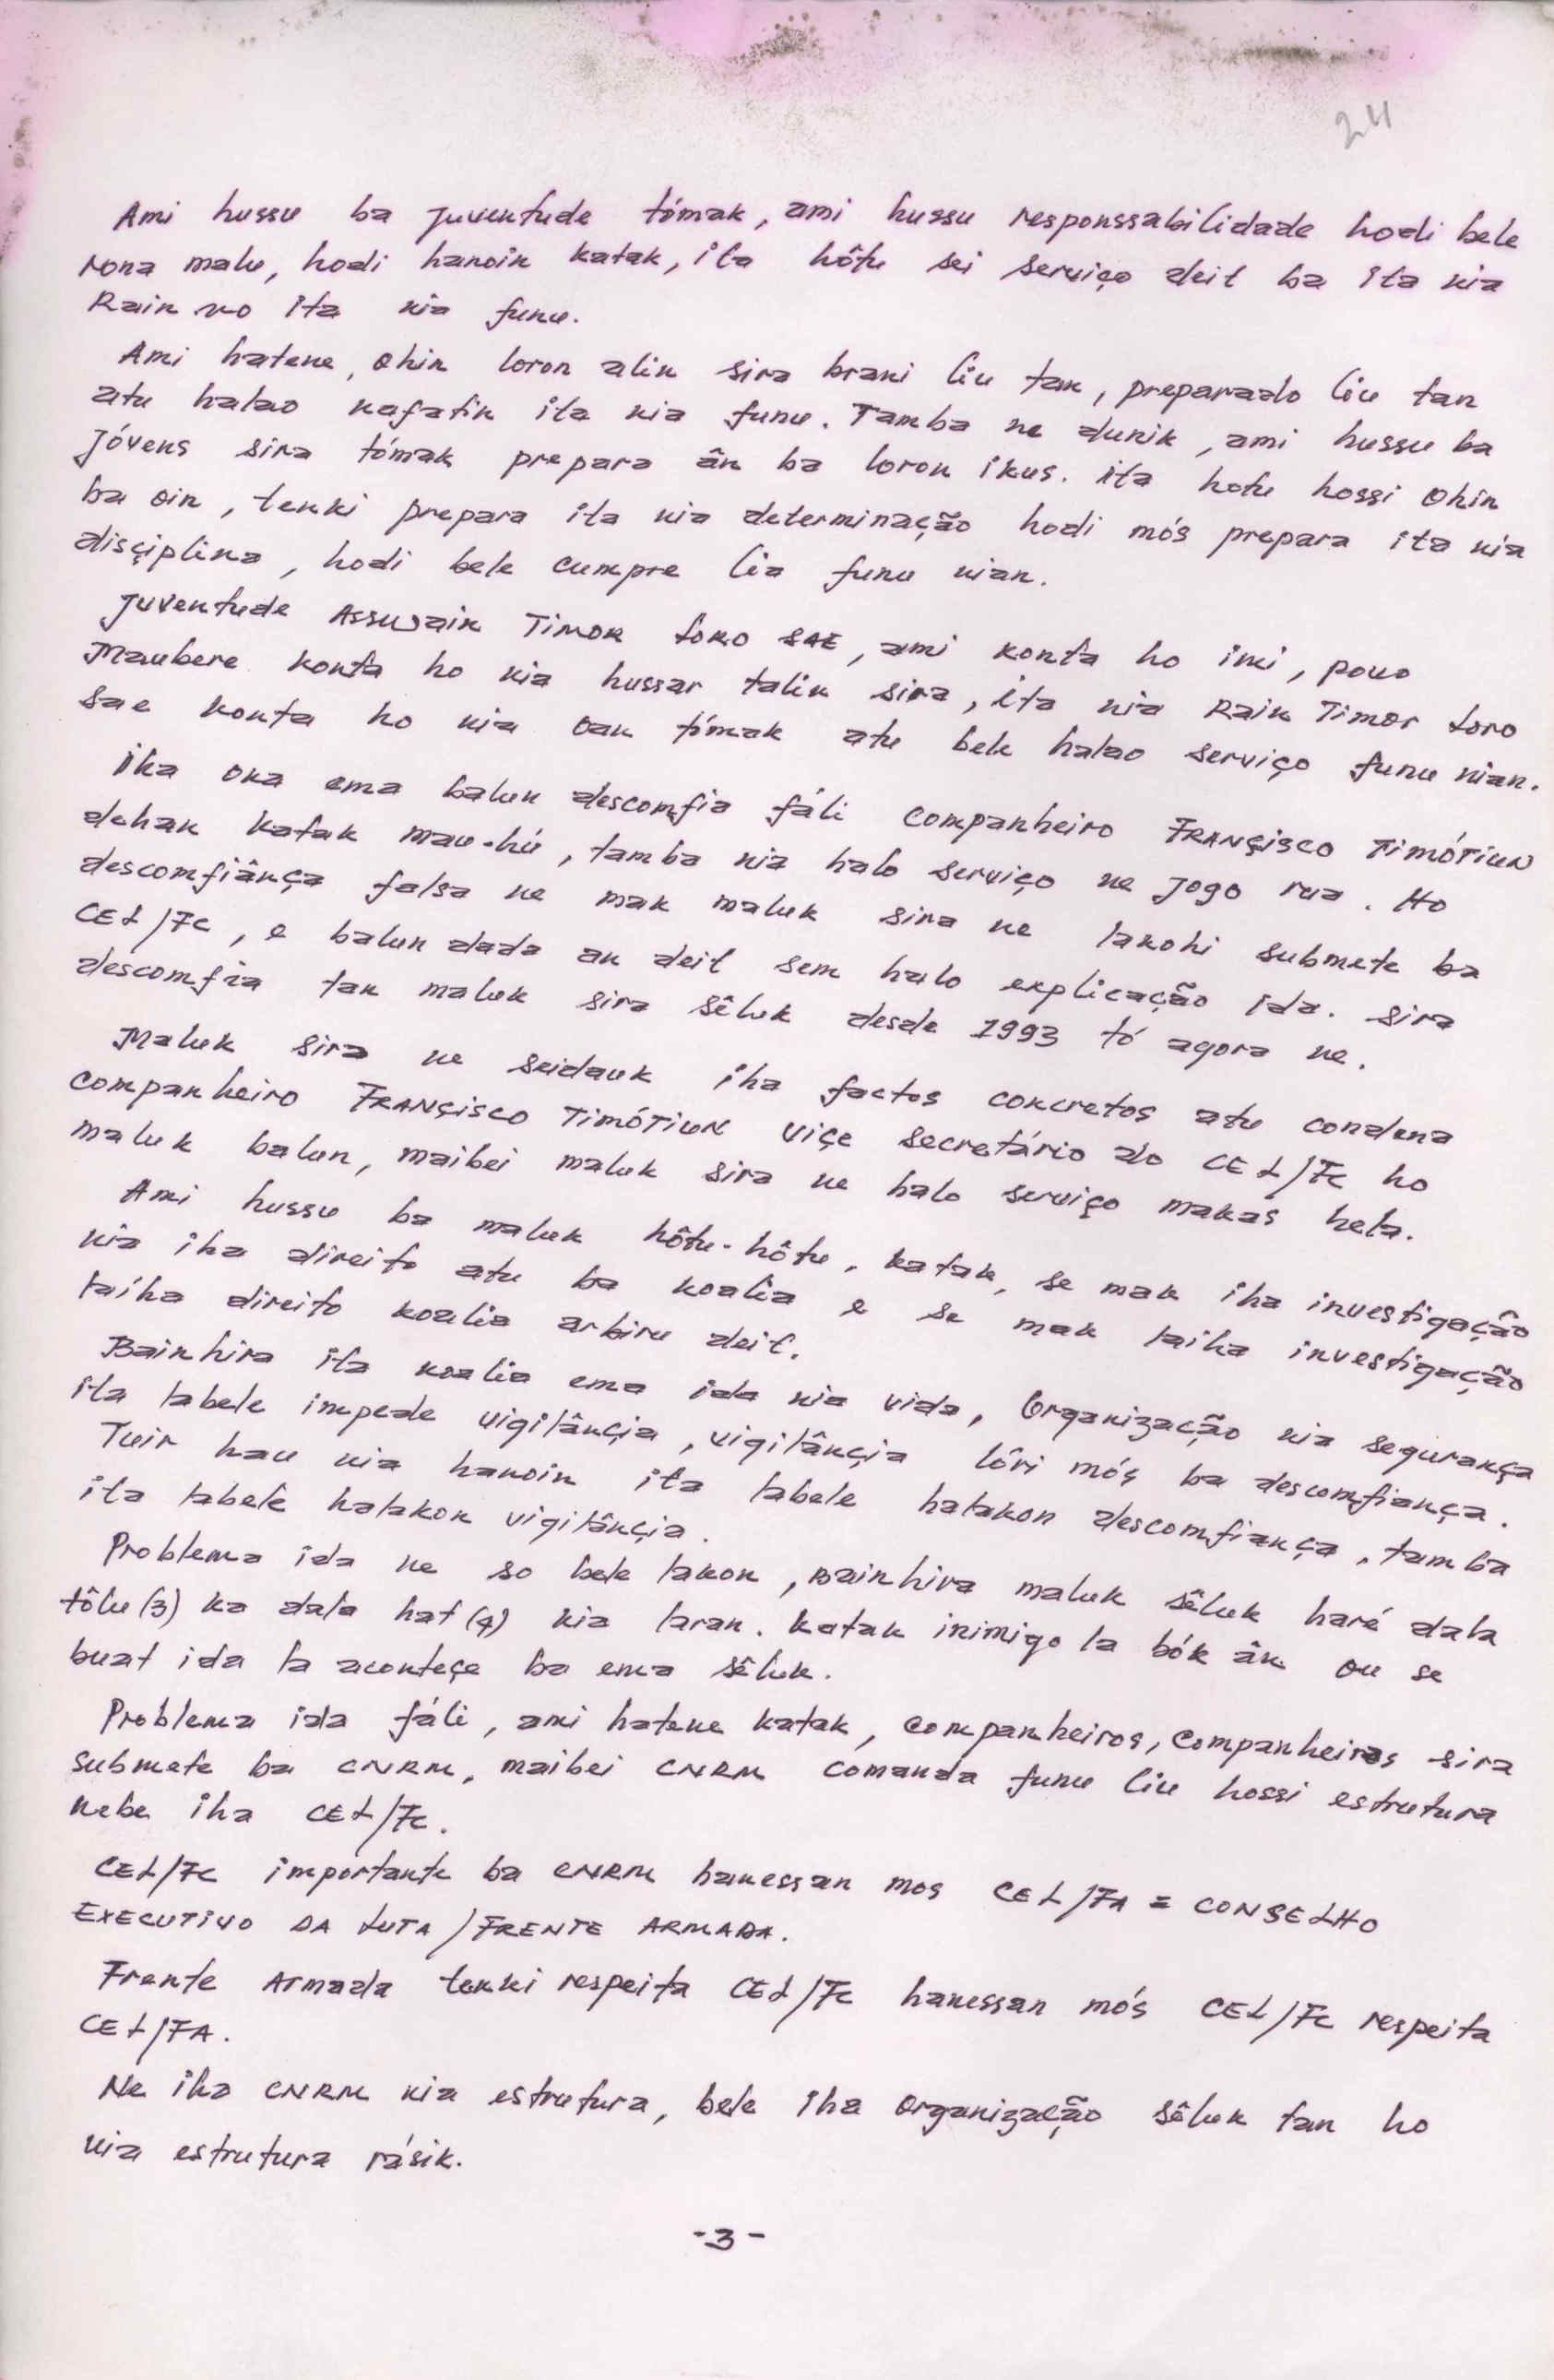 24
Ami hussu ba juventude tómak, ami hussu responssabilidade hodi bele
rona malu, hodi hanoin katak, ita hôtu sei serviço deit ba ita nia
Rain no ita nia funu.
Ami hatene, ohin loron alin sira brani liu tan, preparado liu tan
atu halao nafatin ita nia funu. Tamba ne dunik, ami hussu ba
jóvens sira tómak prepara ân ba loron ikus. ita hotu hossi ohin
ba oin, tenki prepara ita nia determinação hodi mós prepara ita nia
disçiplina, hodi bele cumpre lia funu nian.
Juventude Assuwain TIMOR LORO SAE, ami konta ho imi, povo
Maubere konta ho nia hussar talin sira, ita nia Rain Timor Loro
Sae konta ho nia oan tómak atu bele halao serviço funu nian.
Iha ona ema balun descomfia fáli companheiro FRANÇISCO TIMÓTIUN
dehan katak mau-hú, tamba nia halo serviço ne jogo rua. Ho
descomfiânça falsa ne mak maluk sira ne lakohi submete ba
CEL/FC, e balun dada an deit sem halo explicação ida. Sira
descomfia tan maluk sira sêluk desde 1993 tó agora ne.
Maluk sira ne seidauk iha factos concretos atu condena
companheiro FRANÇISCO TIMÓTIUN viçe secretário do CEL/FC ho
maluk balun, maibei maluk sira ne halo serviço makas hela.
Ami hussu ba maluk hôtu-hôtu, katak, se mak iha investigação
nia iha direito atu ba koalia e se mak laiha investigação
laiha direito koalia arbiru deit.
Bainhira ita koalia ema ida nia vida, Organização nia segurança
ita labele impede vigilânçia, vigilânçia lôri mós ba descomfiança.
Tuir hau nia hanoin ita labele halakon descomfiança, tamba
ita labele halakon vigilânçia.
Problema ida ne so bele lakon, bainhira maluk sêluk haré dala
tôlu (3) ka dala hat (4) nia laran. Katak inimigo la bók ân ou se
buat ida la aconteçe ba ema sêluk.
Problema ida fáli, ami hatene katak, companheiros, companheiros sira
submete ba CNRM, maibei CNRM comanda funu liu hossi estrutura
nebe iha CEL/FC.
CEL/FC importante ba CNRM hanessan mos CEL/FA = CONSELHO
EXECUTIVO DA LUTA / FRENTE ARMADA.
Frente Armada tenki respeita CEL/FC hanessan mós CEL/FC respeita
CEL/FA.
Ne iha CNRM nia estrutura, bele iha organização sêluk tan ho
nia estrutura rásik.
-3-